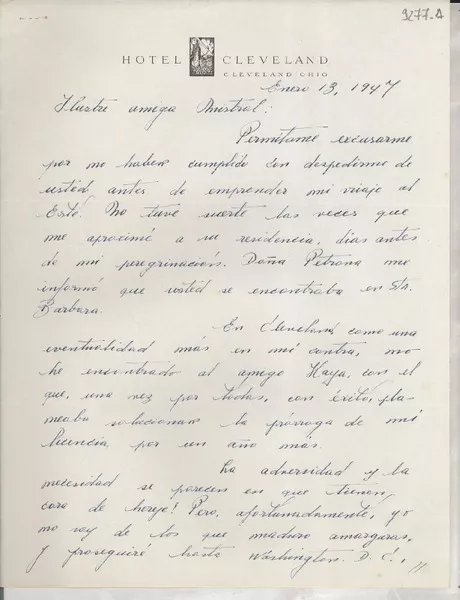 9277.A
HOTEL CLEVELAND
CLEVELAND OHIO
Enero 13, 1947
Ilustre amiga Mistral:
Permítame excusarme
por no haber cumplido con despedirme de
usted antes de emprender mi viaje al
Este. No tuve suerte las veces que
me aproximé a su residencia, días antes
de mi peregrinación. Doña Petrona me
informó que usted se encontraba en Sta.
Barbara.
En Cleveland como una
eventualidad más en mi contra, no
he encontrado al amigo Haya, con el
que, una vez por todas, con éxito, pla-
neaba solucionar la prórroga de mi
licencia, por un año más.
La adversidad y la
necesidad se parecen en que tienen
cara de hereje! Pero, afortunadamente, yo
no soy de los que maduro amarguras,
y proseguiré hasta Washington. D. C.,